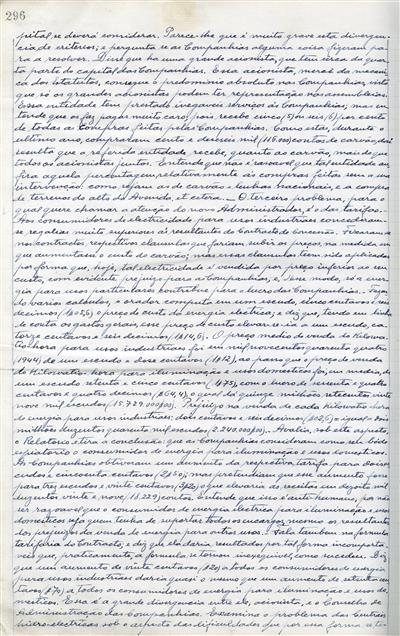 296
pital se deverá considerar. Parece-lhe que é muito grave esta divergên-
cia de criterios; e pergunta se as Companhias alguma coisa fizeram pa-
ra a resolver. Disse que ha uma grande acionista, que tem cêrca da quar-
ta parte do capital das Companhias. Essa acionista, mercê da mecani-
ca dos Estatutos, consegue o predominio absoluto nas Companhias visto
que só os grandes acionistas podem ter representação nas assembleias.
Essa entidade tem prestado inegaveis serviços ás Companhias; mas en-
tende que os faz pagar muito caro, pois recebe cinco (5) ou seis (6) por cento
de todas as compras feitas pelas Companhias. Como estas, durante o
ultimo ano, compraram cento e dezesseis mil (116.000) contos de carvão, daí
resulta que a referida entidade recebe, quanto ao carvão, mais do que
todos os acionistas juntos. Entende que não é razoavel que tal entidade au-
fira aquela percentagem relativamente ás compras feitas sem a sua
intervenção como sejam as de carvão e lenhas nacionais, e a compra
de terrenos do alto da Avenida et cetera. — O terceiro problema, para o
qual quere chamar a atenção do novo Administrador, é o das tarifas.
Aos consumidores de electricidade para usos industriais concederam-
se regalias muito superiores ás resultantes do Contracto de Concessão. Fixaram-se
nos contractos respectivos clausulas que fariam subir os preços, na medida em
que aumentasse o custo do carvão; mas essas clausulas tem sido aplicadas
por forma que, hoje, tal electricidade é vendida por preço inferior ao seu
custo, com evidente prejuizo para as Companhias; e, desse modo, só a ener-
gia para usos particulares contribue para o lucro das Companhias. Fazen-
do varios calculos, o orador computa em um escudo, cinco centavos e seis
decimos (1$05,6) o preço de custo da energia electrica; e diz que, tendo em linha
de conta os gastos gerais, esse preço de custo elevar-se-ia a um escudo, ca-
torze centavos e seis decimos (1$14,6). O preço medio de venda do kilowa-
tio-hora para usos industriais foi em mil novecentos quarenta e quatro
(1944) de um escudo e doze centavos (1$12), ao passo que o preço de venda
do kilowatio-hora para iluminação e usos domesticos foi, em media, de
um escudo setenta e cinco centavos (1$75), com o lucro de sessenta e quatro
centavos e quatro decimos ($64,4), o qual dá quinze milhões setecentos vinte
nove mil escudos (15.729.000$00). Prejuizo na venda de cada kilowatio hora
de energia para usos industriais: dois centavos e seis decimos ($02,6) e igual a dois
milhões duzentos quarenta mil escudos (2.240.000$00). Avalia, sob este aspecto,
o Relatorio e tira a conclusão: que as Companhias consideram como um bode
expiatorio o consumidor de energia para iluminação e usos domesticos.
As Companhias obtiveram um aumento da respectiva tarifa para dois es-
cudos e cincoenta centavos (2$50); mas pretendiam que esse aumento fosse
para tres escudos e vinte centavos (3$20) o que elevaria as receitas em dezoito mil
duzentos vinte e nove (18.229) contos. Entende que isso é anti-humano, por não
ser razoavel que o consumidor de energia electrica para iluminação e usos
domesticos seja quem tenha de suportar todos os encargos, mesmo os resultantes
dos prejuizos da venda de energia para outros usos. Fala tambem na formula
tarifaria do Contracto, e diz que ela daria resultados por tal forma incomporta-
veis que, praticamente, a formula se tornou inexequivel, como sucedeu. Diz
que um aumento de vinte centavos ($20) a todos os consumidores de energia
para usos industriais daria quasi o mesmo que um aumento de setenta cen-
tavos ($70) a todos os consumidores de energia para iluminação e usos do-
mesticos. Essa é a grande divergencia entre ele, acionista, e o Conselho de
Administração das Companhias. Examina o problema das Centrais
hidro-electricas sob o aspecto das dificuldades que por essa forma se le-